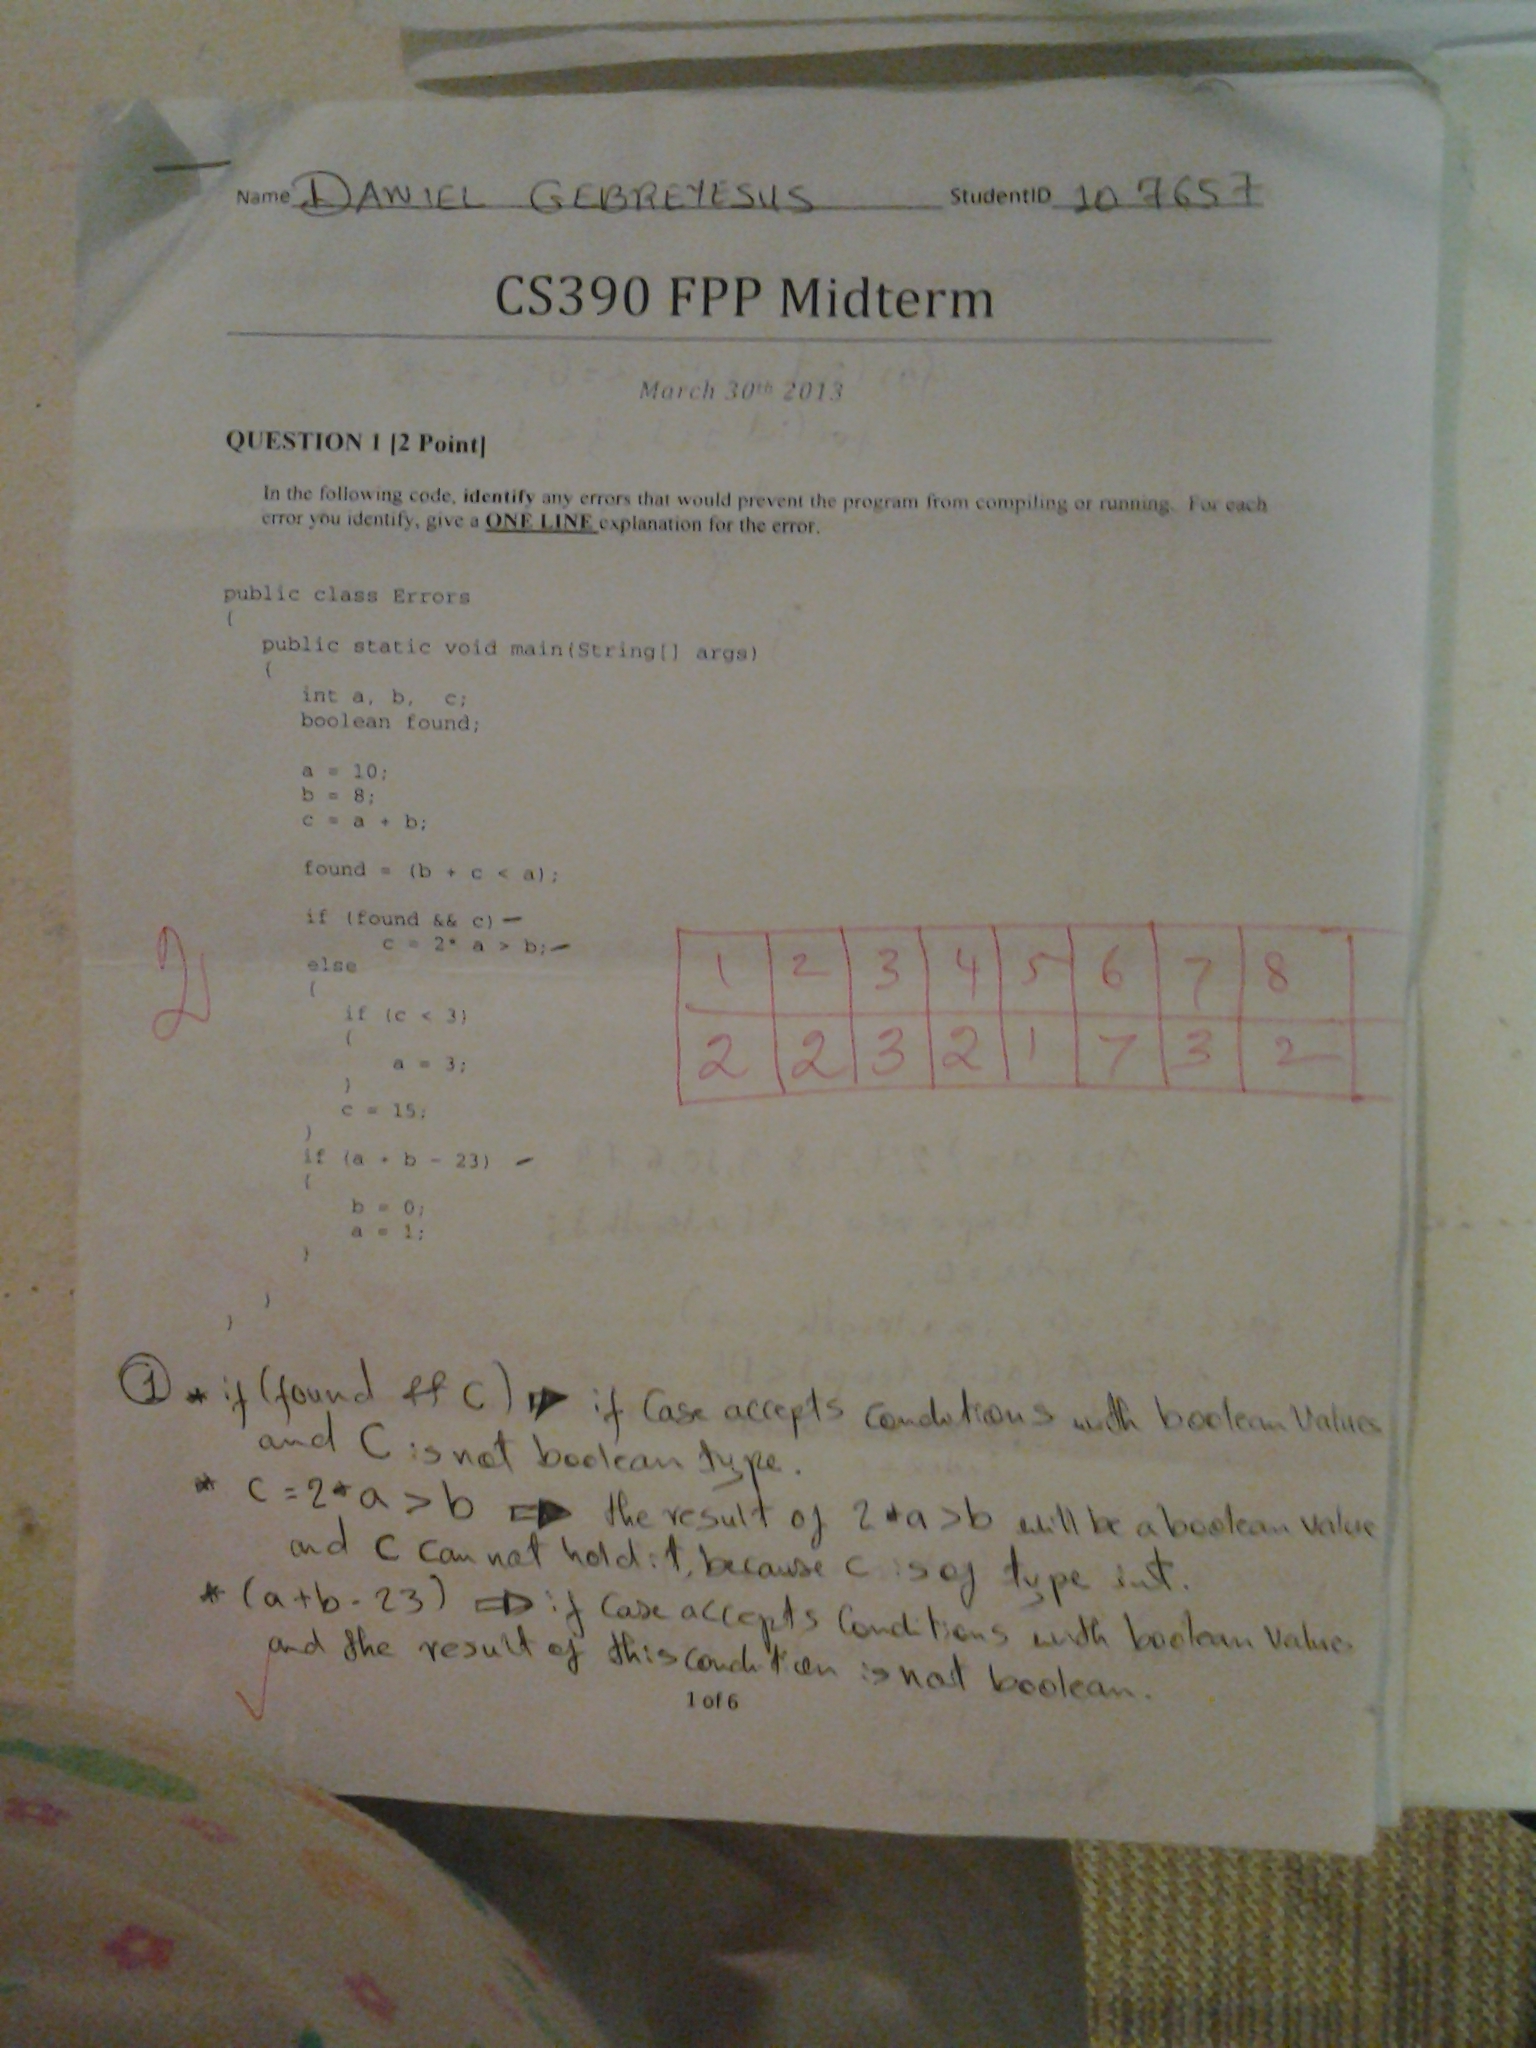 Name DANIEL GEBREYESUS StudentID 107657
CS390 FPP Midterm
March 30th 2013
QUESTION 1 [2 Point]
In the following code, identify any errors that would prevent the program from compiling or running. For each
error you identify, give a ONE LINE explanation for the error.
public class Errors
{
public static void main(String[] args)
{
int a, b, c;
boolean found;
a = 10;
b = 8;
c = a + b;
found = (b + c < a);
if (found && c)
c = 2* a > b;
else
{
if (c < 3)
{
a = 3;
}
c = 15;
}
if (a + b - 23)
{
b = 0;
a = 1;
}
}
}
2
1 2 3 4 5 6 7 8
2 2 3 2 1 7 3 2
1 * if (found && c) ⇒ if Case accepts conditions with boolean values
and C is not boolean type.
* C = 2*a > b ⇒ the result of 2*a>b will be a boolean value
and C can not hold it, because c is of type int.
* (a+b-23) ⇒ if Case accepts Conditions with boolean values
and the result of this condition is not boolean.
1 of 6